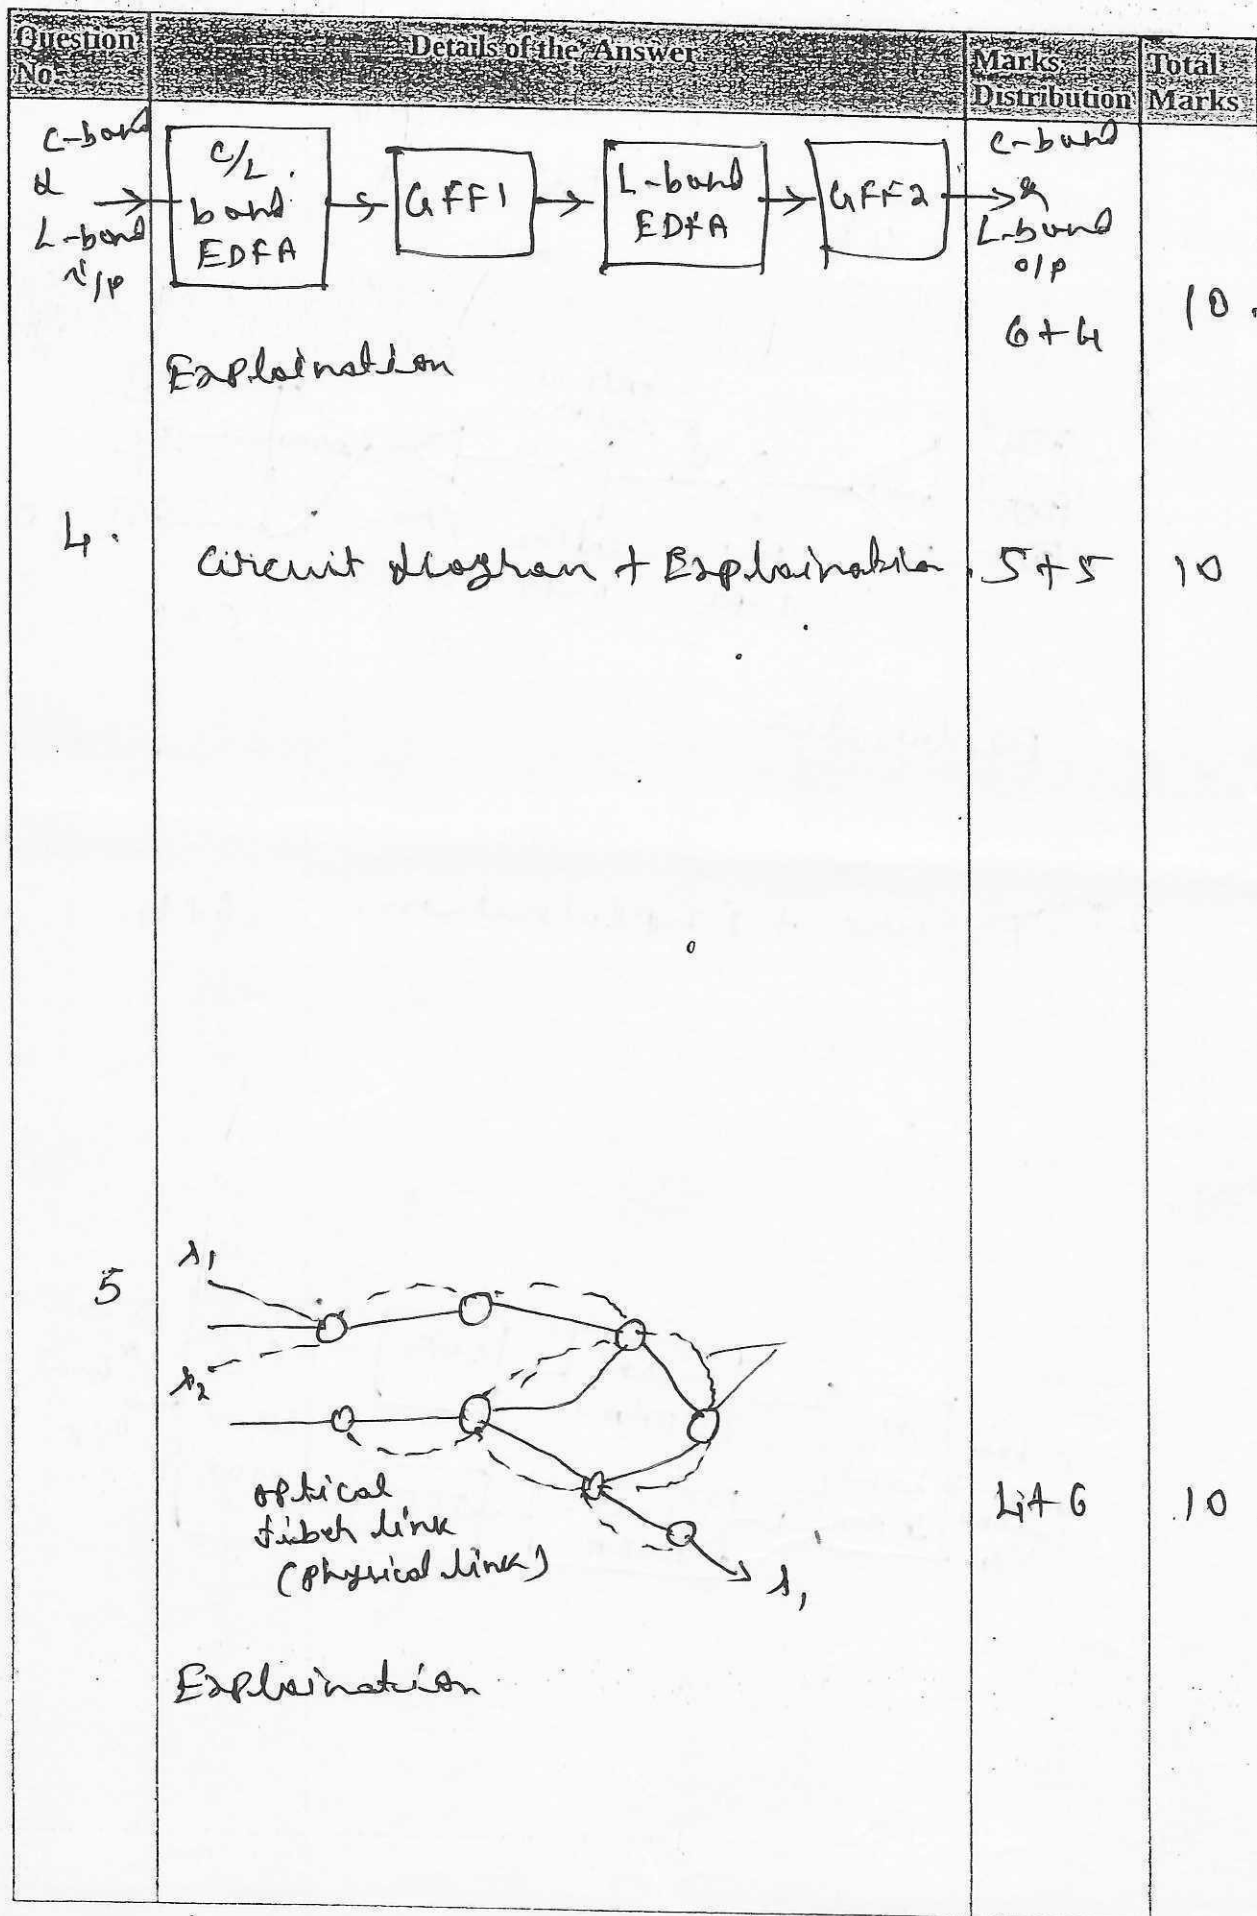 Question No. Details of the Answer Marks Distribution Total Marks
C-band & L-band i/p
C/L band EDFA
GFF1
L-band EDFA
GFF2
C-band & L-band o/p
6+4 10.
Explaination
4. Circuit diagram + Explaination. 5+5 10
5
λ1
λ2
optical
fiber link
(physical link)
4+6 10
λ1
Explaination